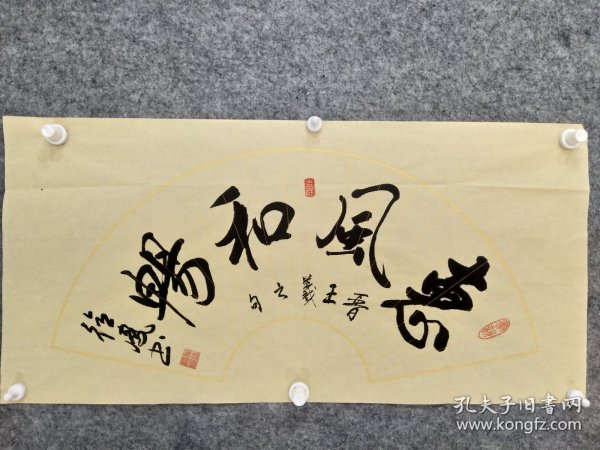 惠風和暢
晋王羲之句
书
孔夫子旧書网
www.kongfz.com